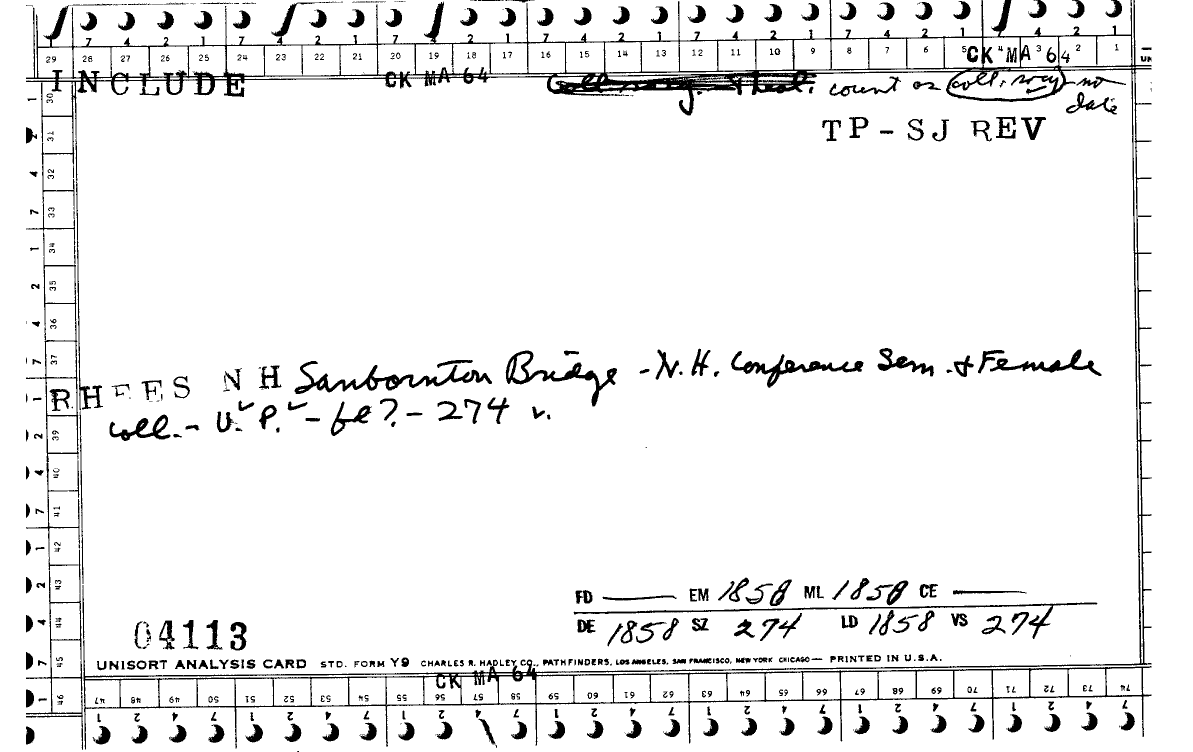 7 4 2 1 7 4 2 1 7 4 2 1 7 4 2 1 7 4 2 1 7 4 2 1 7 4 2 1
29 28 27 26 25 24 23 22 21 20 19 18 17 16 15 14 13 12 11 10 9 8 7 6 5 4 3 2 1
CK MA 64
INCLUDE CK MA 64 count as coll. socy - no
date
TP-SJ REV
1 30
2 31
4 32
7 33
1 34
2 35
4 36
7 37
RHEES NH Sanbornton Bridge - N.H. Conference Sem. & Female
coll. - U. P. - fe?. - 274 v.
2 39
4 40
7 41
1 42
2 43
4 44
7 45
1 46
FD —— EM 1858 ML 1858 CE ——
DE 1858 SZ 274 LD 1858 VS 274
04113
UNISORT ANALYSIS CARD STD. FORM Y9 CHARLES R. HADLEY CO., PATHFINDERS, LOS ANGELES, SAN FRANCISCO, NEW YORK CHICAGO — PRINTED IN U.S.A.
CK MA 64
47 48 49 50 51 52 53 54 55 56 57 58 59 60 61 62 63 64 65 66 67 68 69 70 71 72 73 74
1 2 4 7 1 2 4 7 1 2 4 7 1 2 4 7 1 2 4 7 1 2 4 7 1 2 4 7